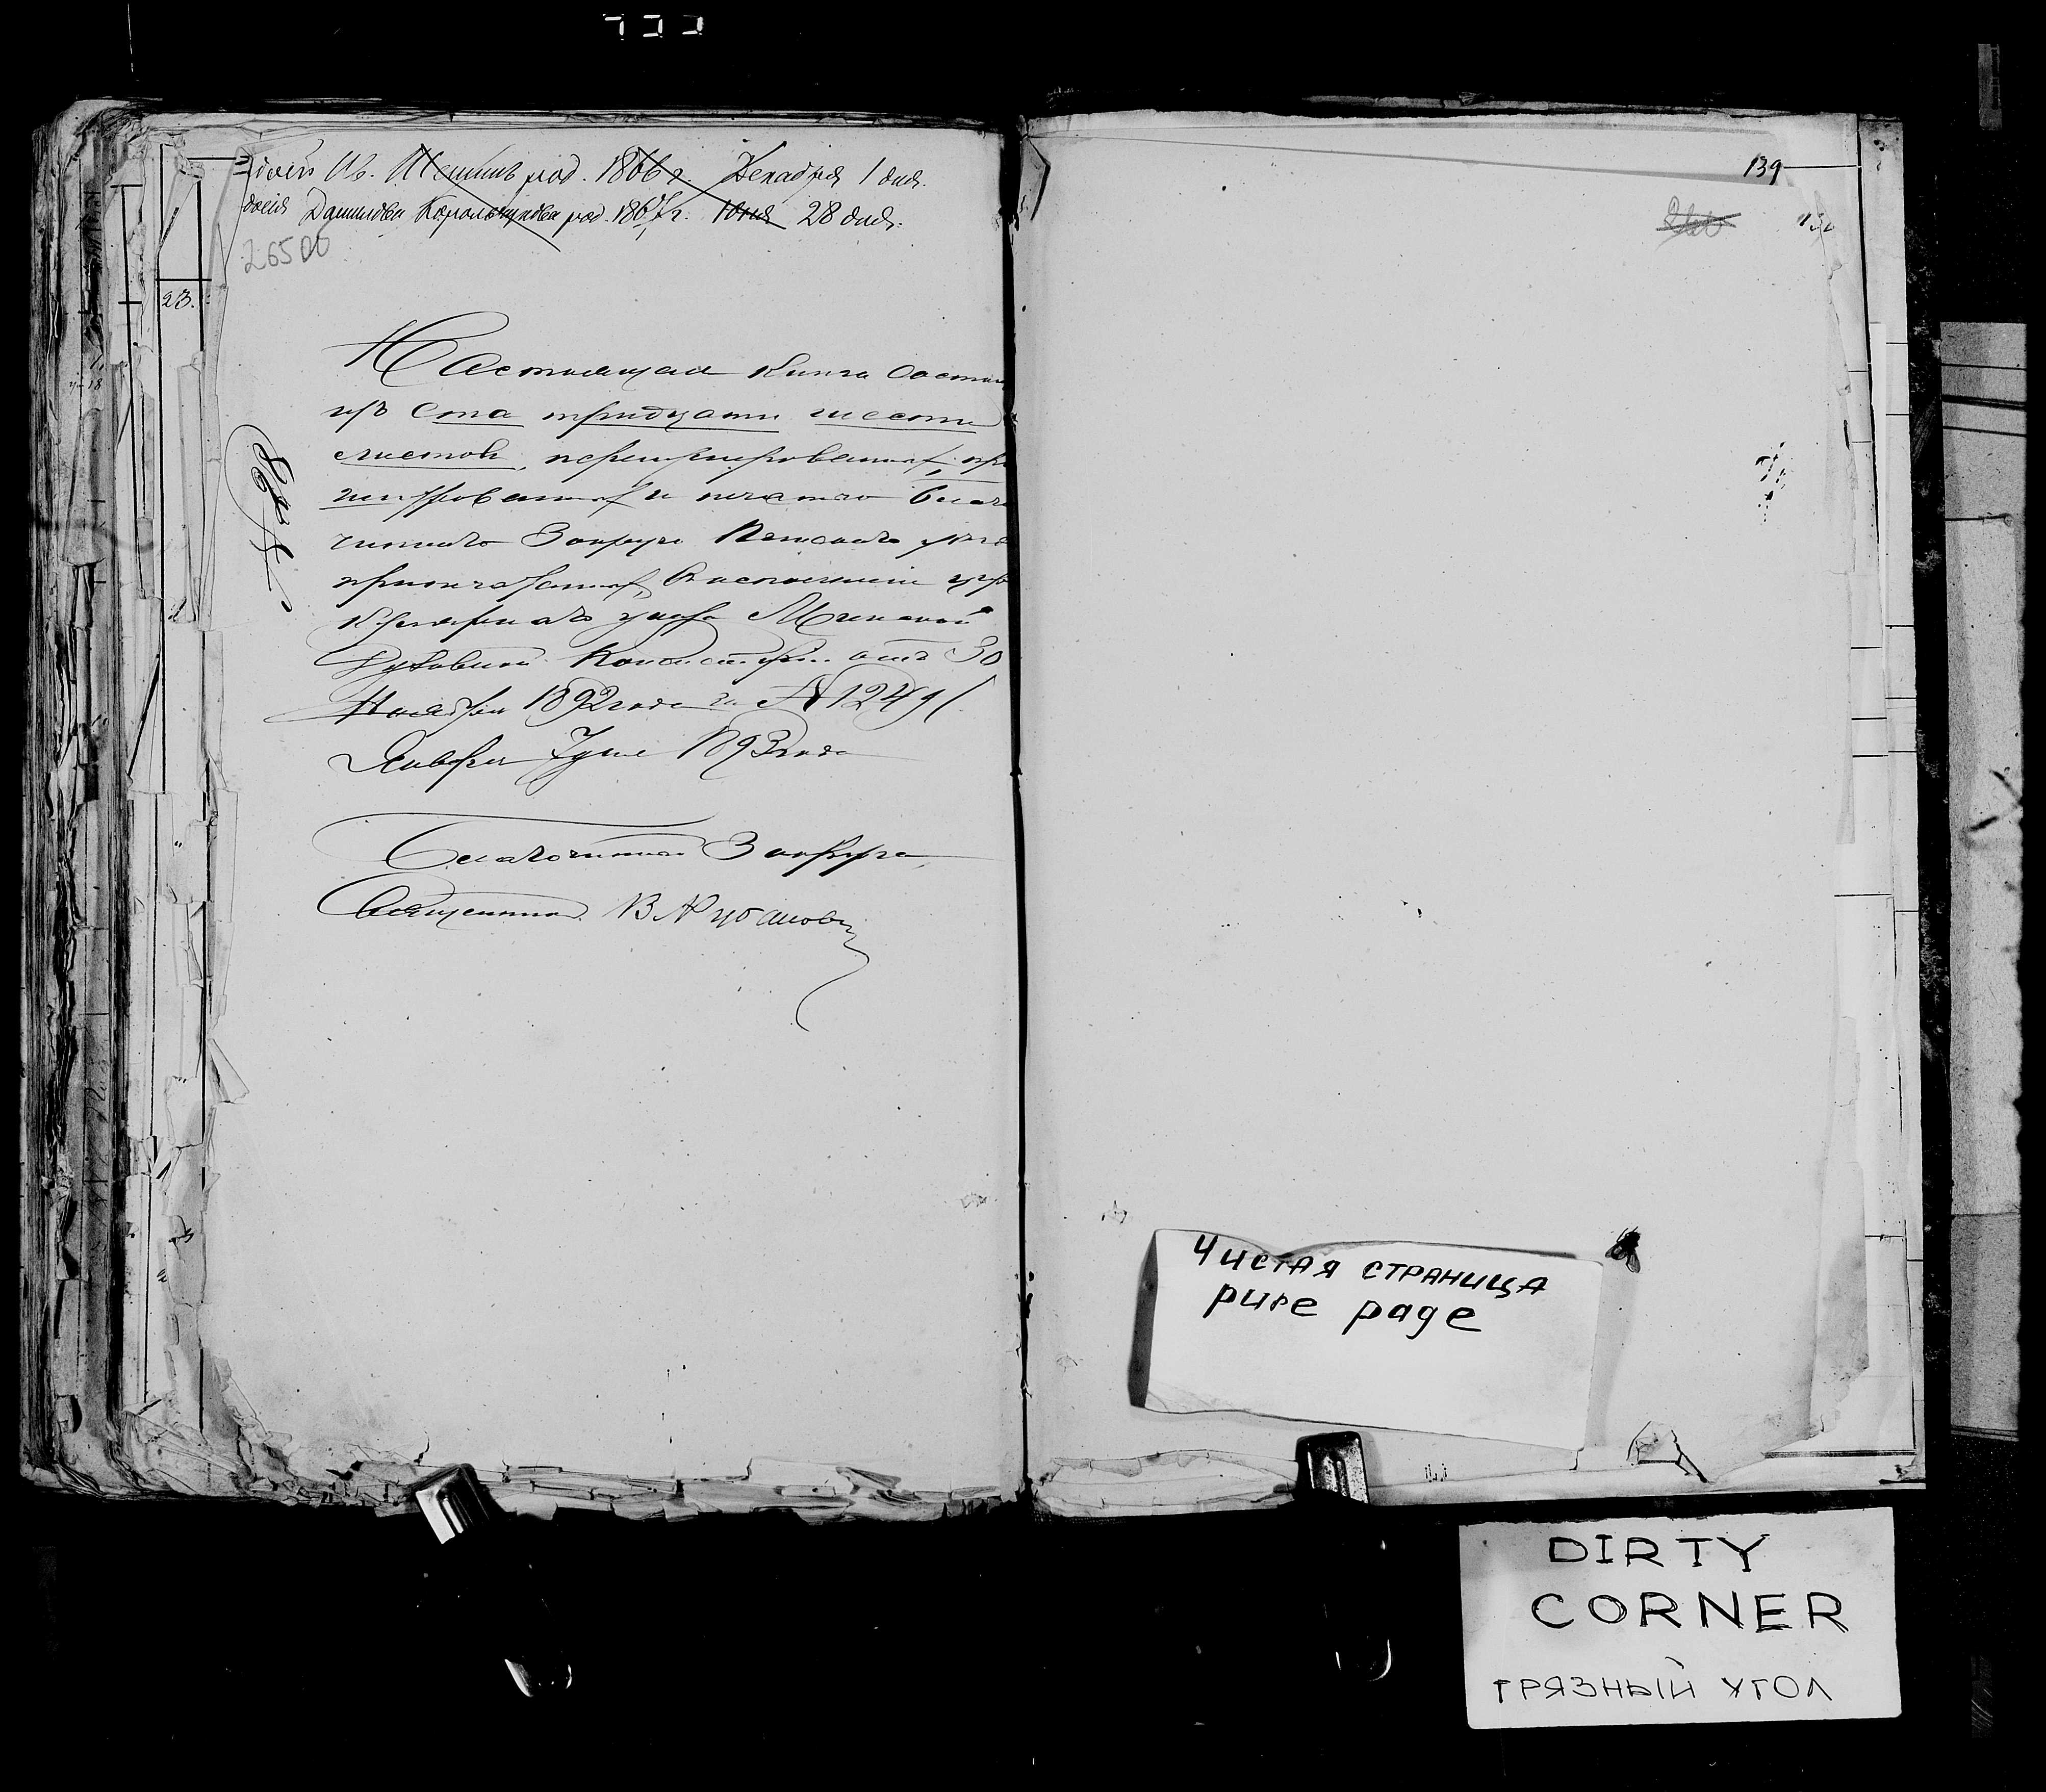 Ив. род. 1866 г. Декабря 1 дня.
Данилова Корольчукова род. 1867 г. Юня 28 дня.
26500
23.
Настоящая Книга Состои
изъ Ста тридцати шести
листов, перенумерованных, про
шнурованных и печатью Благо
чиннаго 3 округа Пинскаго уезда
припечатанных, Во исполнение указа
Минской
Духовной Консистории отъ 30
Ноября 1892 года за № 12491.
Января 7 дня 1893 года
Благочинный 3 округа,
Священник В
139
Чистая страница
pure page
DIRTY
CORNER
грязный угол